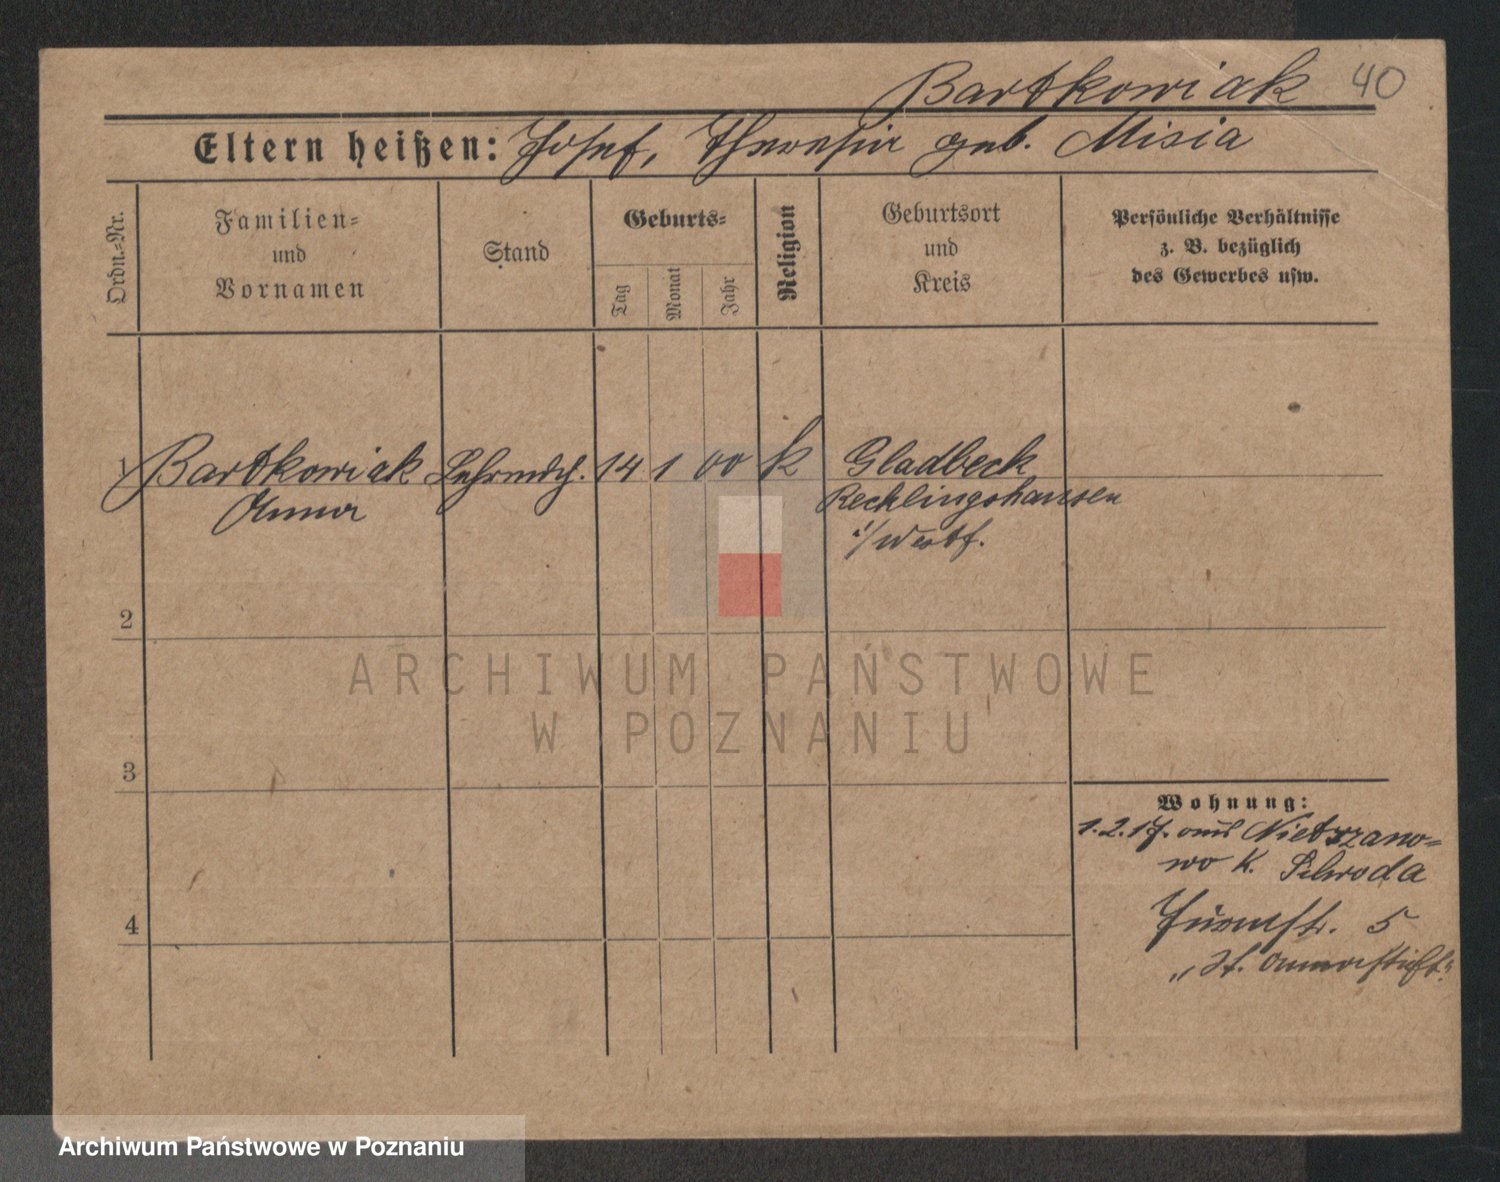 Bartkowiak 40
Eltern heißen: Josef, Theresia geb. Misia
Ordn.-Nr.
Familien-
und
Vornamen
Stand
Geburts-
Tag
Monat
Jahr
Religion
Geburtsort
und
Kreis
Persönliche Verhältnisse
z. B. bezüglich
des Gewerbes usw.
1 Bartkowiak Lehrmdch. 14 1 00 k Gladbeck
Anna Recklingshausen
i/Westf.
2
3
4
Wohnung:
1.2.17. aus Nietrzano=
wo K. Schroda
5
"St. Annastift"
ARCHIWUM PAŃSTWOWE
W POZNANIU
Archiwum Państwowe w Poznaniu